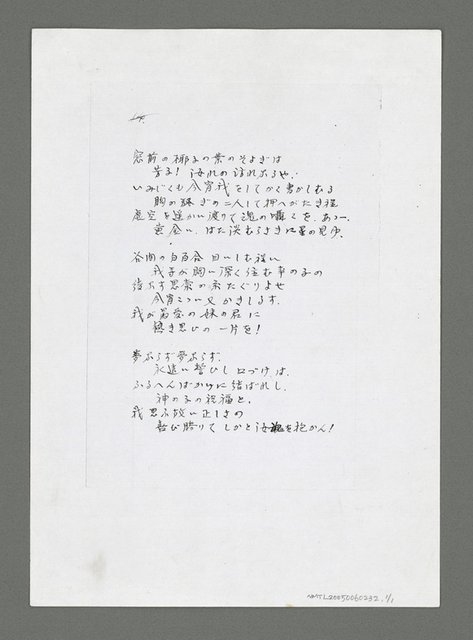 窓前の椰子の葉のそよぎは
昔る! 汝れの訪れあるや、
いみじくも今宵我をしてかく書かしむる
胸の騒ぎの二人して押へがたき程
虚空を遥かに渡りて魂の囁くを、あゝ、
黄金い、はた淡むらさきに星の見ゆ、
谷間の白百合
我子が胸に深く住む幸の子の
思索の糸たぐりよせ
今宵こゝに又かきしるす、
我が最愛の妹の君に
熱き思ひの一片を!
夢ならず夢ならず、
永遠に誓ひし口づけは、
ふるへんばかりに結ばれし、
神の子の祝福と、
我思ふ故に正しきの
告び勝りてしかと汝魂を抱かん!
NMTL20050060232, 1/1